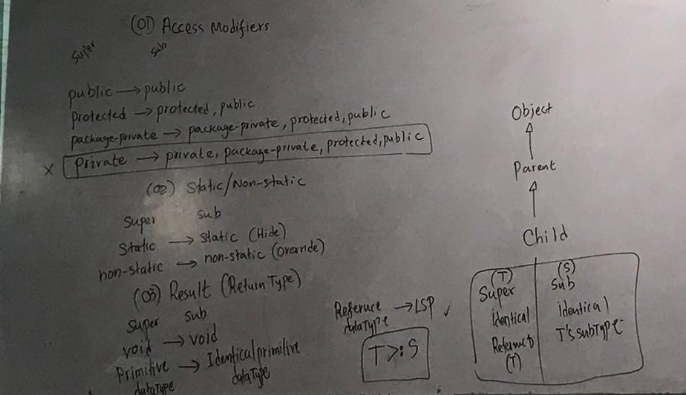 (01) Access Modifiers
Super sub
public → public
Protected → protected, public
package-private → package-private, protected, public
x private → private, package-private, protected, public
(02) Static/Non-static
Super sub
Static → static (Hide)
non-static → non-static (Override)
(03) Result (Return Type)
Super sub
void → void
Primitive → Identical primitive
dataType dataType
Reference → LSP ✓
dataType
T >: S
Object
Parent
Child
(T) (S)
Super Sub
identical identical
Reference T's subType
(T)